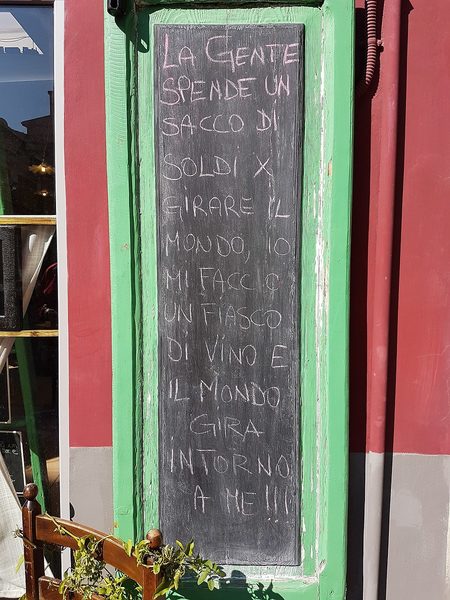 LA GENTE
SPENDE UN
SACCO DI
SOLDI X
GIRARE IL
MONDO, IO
MI FACCIO
UN FIASCO
DI VINO E
IL MONDO
GIRA
INTORNO
A ME!!!